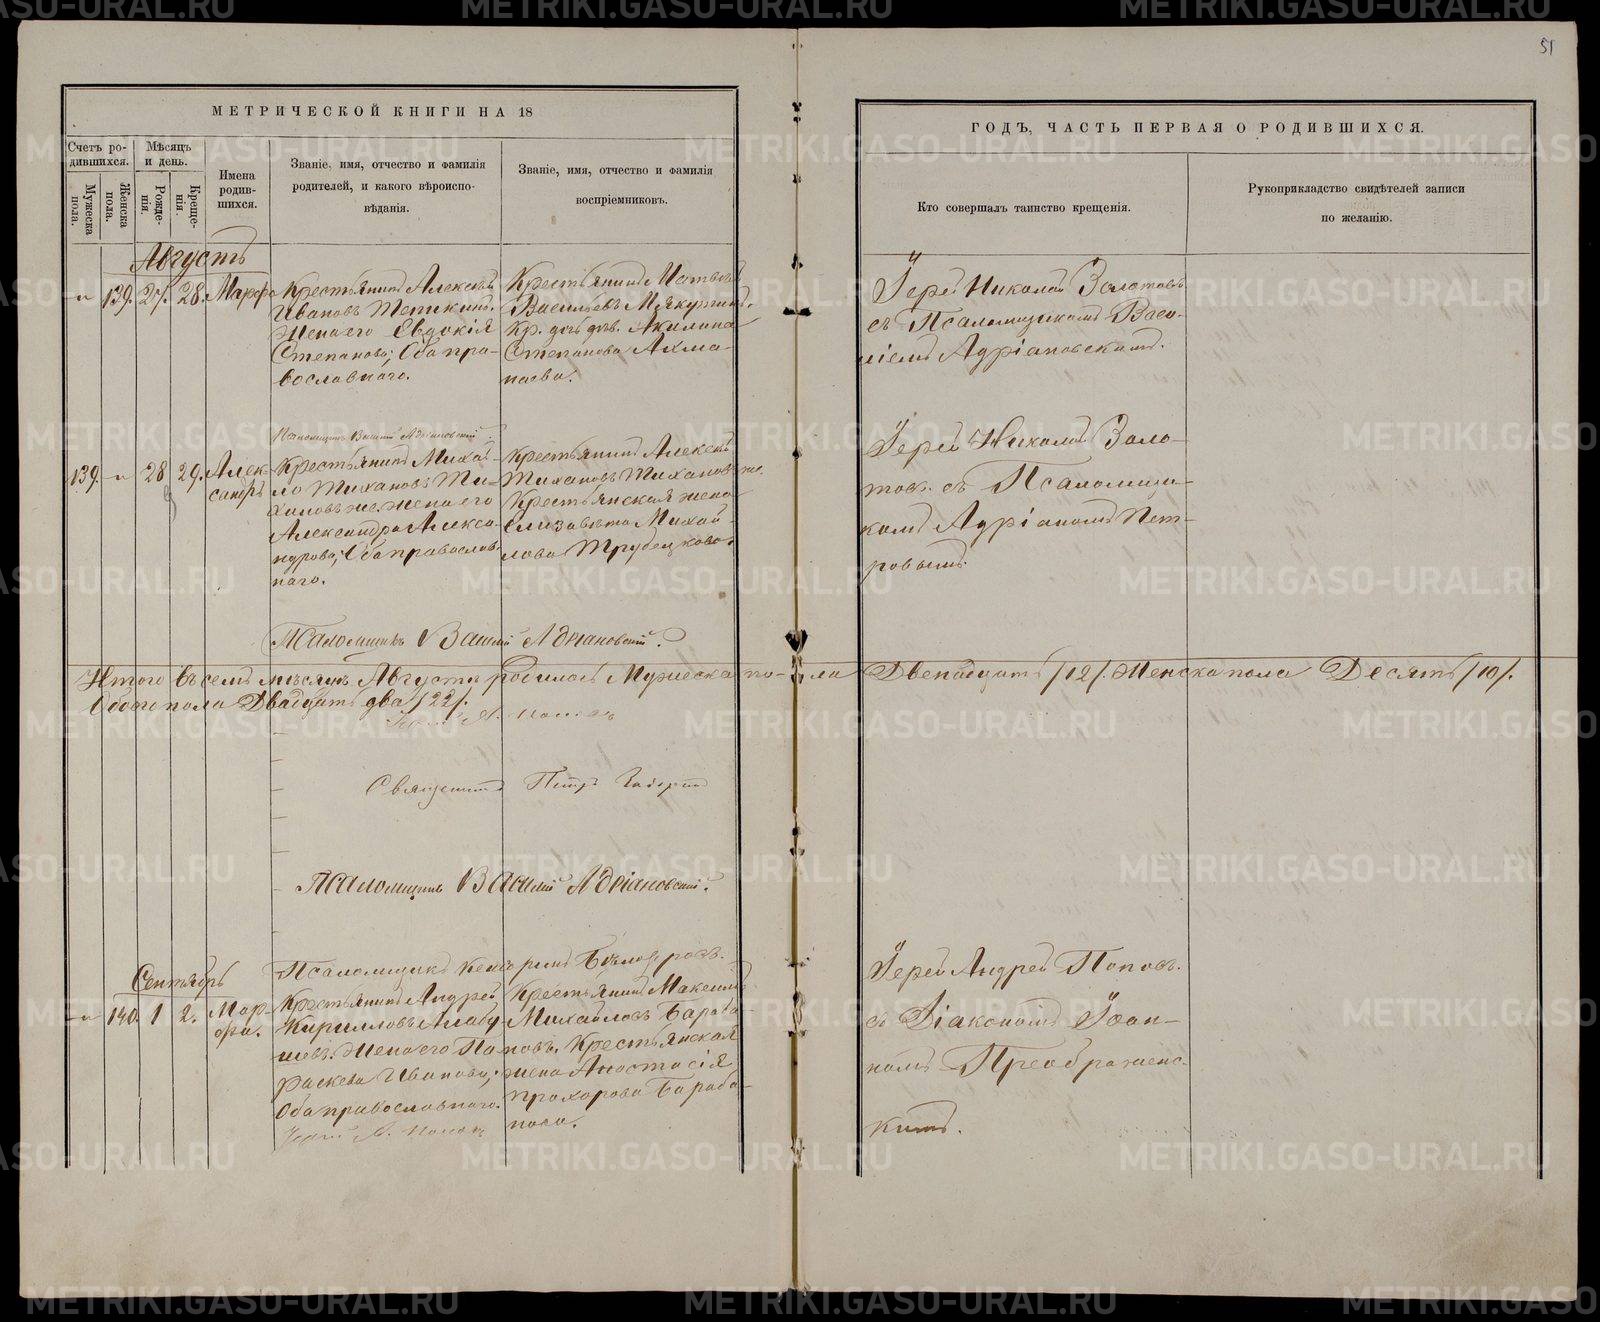 51
МЕТРИЧЕСКОЙ КНИГИ НА 18
ГОДЪ, ЧАСТЬ ПЕРВАЯ О РОДИВШИХСЯ.
Счетъ ро-
дившихся.
Мужеска
пола.
Женска
пола.
Мѣсяцъ
и день.
Рожде-
нія.
Креще-
нія.
Имена
родив-
шихся.
Званіе, имя, отчество и фамилія
родителей, и какого вѣроиспо-
вѣданія.
Званіе, имя, отчество и фамилія
воспріемниковъ.
Кто совершалъ таинство крещенія.
Рукоприкладство свидѣтелей записи
по желанію.
Августъ
139. 27. 28. Марфа
Крестьянинъ Алексѣй
Ивановъ
Жена его Евдокія
Степанова; Оба пра-
вославнаго.
Крестьянинъ Матвей
Васильевъ Мякутинъ.
Кр. дочь дѣв. Акилина
Степанова Ахма-
наева.
Іерей Николай Золотовъ
съ Псаломщикомъ Васи-
ліемъ Адріановскимъ.
Псаломщикъ Василій Адріановскій.
139. 28 29. Алек-
сандръ
Крестьянинъ Михай-
ло Тихановъ Ти-
хановъ же. Жена его
Александра Алекса-
ндрова; Оба православ-
наго.
Крестьянинъ Алексѣй
Тихановъ Тихановъ же.
Крестьянская жена
Елизавета Михай-
лова Трубецкова.
Іерей Николай Золо-
товъ съ Псаломщи-
комъ Адріаномъ Пет-
ровымъ.
Псаломщикъ Василій Адріановскій.
Итого въ семъ мѣсяцѣ Августѣ родилось Мужеска по-ла Двенадцать /12/. Женска пола Десять /10/.
Обоего пола Двадцать два /22/.
Іерей А. Поповъ
Священникъ Петръ
Псаломщикъ Василій Адріановскій.
Псаломщикъ
Сентябрь
140. 1 2. Мар-
фа.
Крестьянинъ Андрей
Кирилловъ
шевъ. Жена его Па-
раскева Иванова;
Оба православнаго.
Іерей А. Поповъ
Крестьянинъ Максимъ
Михайловъ Бараба-
новъ. Крестьянская
жена Анастасія
Прохорова Бараба-
нова.
Іерей Андрей Поповъ.
съ Діакономъ Іоан-
номъ Преображенс-
кимъ.
METRIKI.GASO-URAL.RU